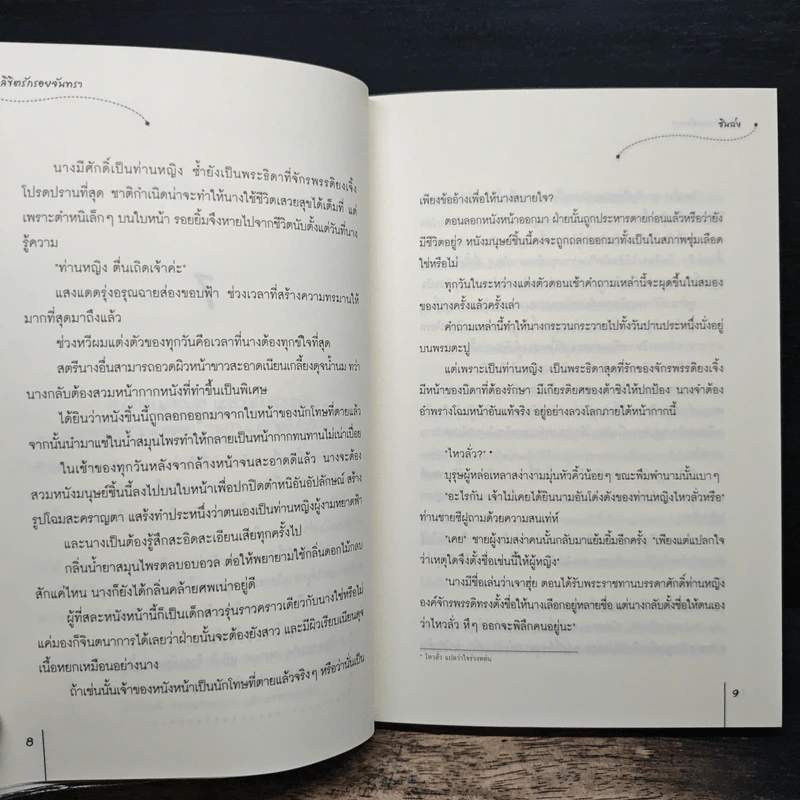 ลิขิตรักรอยจันทรา
นางมีศักดิ์เป็นท่านหญิง ซ้ำยังเป็นพระธิดาที่จักรพรรดิยงเจิ้ง
โปรดปรานที่สุด ชาติกำเนิดน่าจะทำให้นางใช้ชีวิตเสวยสุขได้เต็มที่ แต่
เพราะตำหนิเล็กๆ บนใบหน้า รอยยิ้มจึงหายไปจากชีวิตนับตั้งแต่วันที่นาง
รู้ความ
"ท่านหญิง ตื่นเถิดเจ้าค่ะ"
แสงแดดรุ่งอรุณฉายส่องขอบฟ้า ช่วงเวลาที่สร้างความทรมานให้
มากที่สุดมาถึงแล้ว
ช่วงหวีผมแต่งตัวของทุกวันคือเวลาที่นางต้องทุกข์ใจที่สุด
สตรีนางอื่นสามารถอวดผิวหน้าขาวสะอาดเนียนเกลี้ยงดุจน้ำนม ทว่า
นางกลับต้องสวมหน้ากากหนังที่ทำขึ้นเป็นพิเศษ
ได้ยินว่าหนังชิ้นนี้ถูกลอกออกมาจากใบหน้าของนักโทษที่ตายแล้ว
จากนั้นนำมาแช่ในน้ำสมุนไพรทำให้กลายเป็นหน้ากากทนทานไม่เน่าเปื่อย
ในเช้าของทุกวันหลังจากล้างหน้าจนสะอาดดีแล้ว นางจะต้อง
สวมหนังมนุษย์ชิ้นนี้ลงไปบนใบหน้าเพื่อปกปิดตำหนิอันอัปลักษณ์ สร้าง
รูปโฉมสะคราญตา แสร้งทำประหนึ่งว่าตนเองเป็นท่านหญิงผู้งามหยาดฟ้า
และนางเป็นต้องรู้สึกสะอิดสะเอียนเสียทุกครั้งไป
กลิ่นน้ำยาสมุนไพรตลบอบอวล ต่อให้พยายามใช้กลิ่นดอกไม้กลบ
สักแค่ไหน นางก็ยังได้กลิ่นคล้ายศพเน่าอยู่ดี
ผู้ที่สละหนังหน้านี้ก็เป็นเด็กสาวรุ่นราวคราวเดียวกับนางใช่หรือไม่
แค่มองก็จินตนาการได้เลยว่าฝ่ายนั้นจะต้องยังสาว และมีผิวเรียบเนียนดุจ
เนื้อหยกเหมือนอย่างนาง
ถ้าเช่นนั้นเจ้าของหนังหน้าเป็นนักโทษที่ตายแล้วจริงๆ หรือว่านั่นเป็น
8
ชินฉ่ง
เพียงข้ออ้างเพื่อให้นางสบายใจ?
ตอนลอกหนังหน้าออกมา ฝ่ายนั้นถูกประหารตายก่อนแล้วหรือว่ายัง
มีชีวิตอยู่? หนังมนุษย์ชิ้นนี้คงจะถูกถลกออกมาทั้งเป็นในสภาพชุ่มเลือด
ใช่หรือไม่
ทุกวันในระหว่างแต่งตัวตอนเช้าคำถามเหล่านี้จะผุดขึ้นในสมอง
ของนางครั้งแล้วครั้งเล่า
คำถามเหล่านี้ทำให้นางกระวนกระวายไปทั้งวันปานประหนึ่งนั่งอยู่
บนพรมตะปู
แต่เพราะเป็นท่านหญิง เป็นพระธิดาสุดที่รักของจักรพรรดิยงเจิ้ง
มีหน้าของบิดาที่ต้องรักษา มีเกียรติยศของต้าชิงให้ปกป้อง นางจำต้อง
อำพรางโฉมหน้าอันแท้จริง อยู่อย่างลวงโลกภายใต้หน้ากากนี้
"ไหวลั่ว?" *
บุรุษผู้หล่อเหลาสง่างามมุ่นหัวคิ้วน้อยๆ ขณะพึมพำนามนั้นเบาๆ
"อะไรกัน เจ้าไม่เคยได้ยินนามอันโด่งดังของท่านหญิงไหวลั่วหรือ"
ท่านชายซีฝูถามด้วยความสนเท่ห์
"เคย" ชายผู้งามสง่าคนนั้นกลับมาแย้มยิ้มอีกครั้ง "เพียงแต่แปลกใจ
ว่าเหตุใดจึงตั้งชื่อเช่นนี้ให้ผู้หญิง"
"นางมีชื่อเล่นว่าเจาฮุ่ย ตอนได้รับพระราชทานบรรดาศักดิ์ท่านหญิง
องค์จักรพรรดิทรงตั้งชื่อให้นางเลือกอยู่หลายชื่อ แต่นางกลับตั้งชื่อให้ตนเอง
ว่าไหวลั่ว หึๆ ออกจะพิลึกคนอยู่นะ"
* ไหวลั่ว แปลว่าใจร่วงหล่น
9